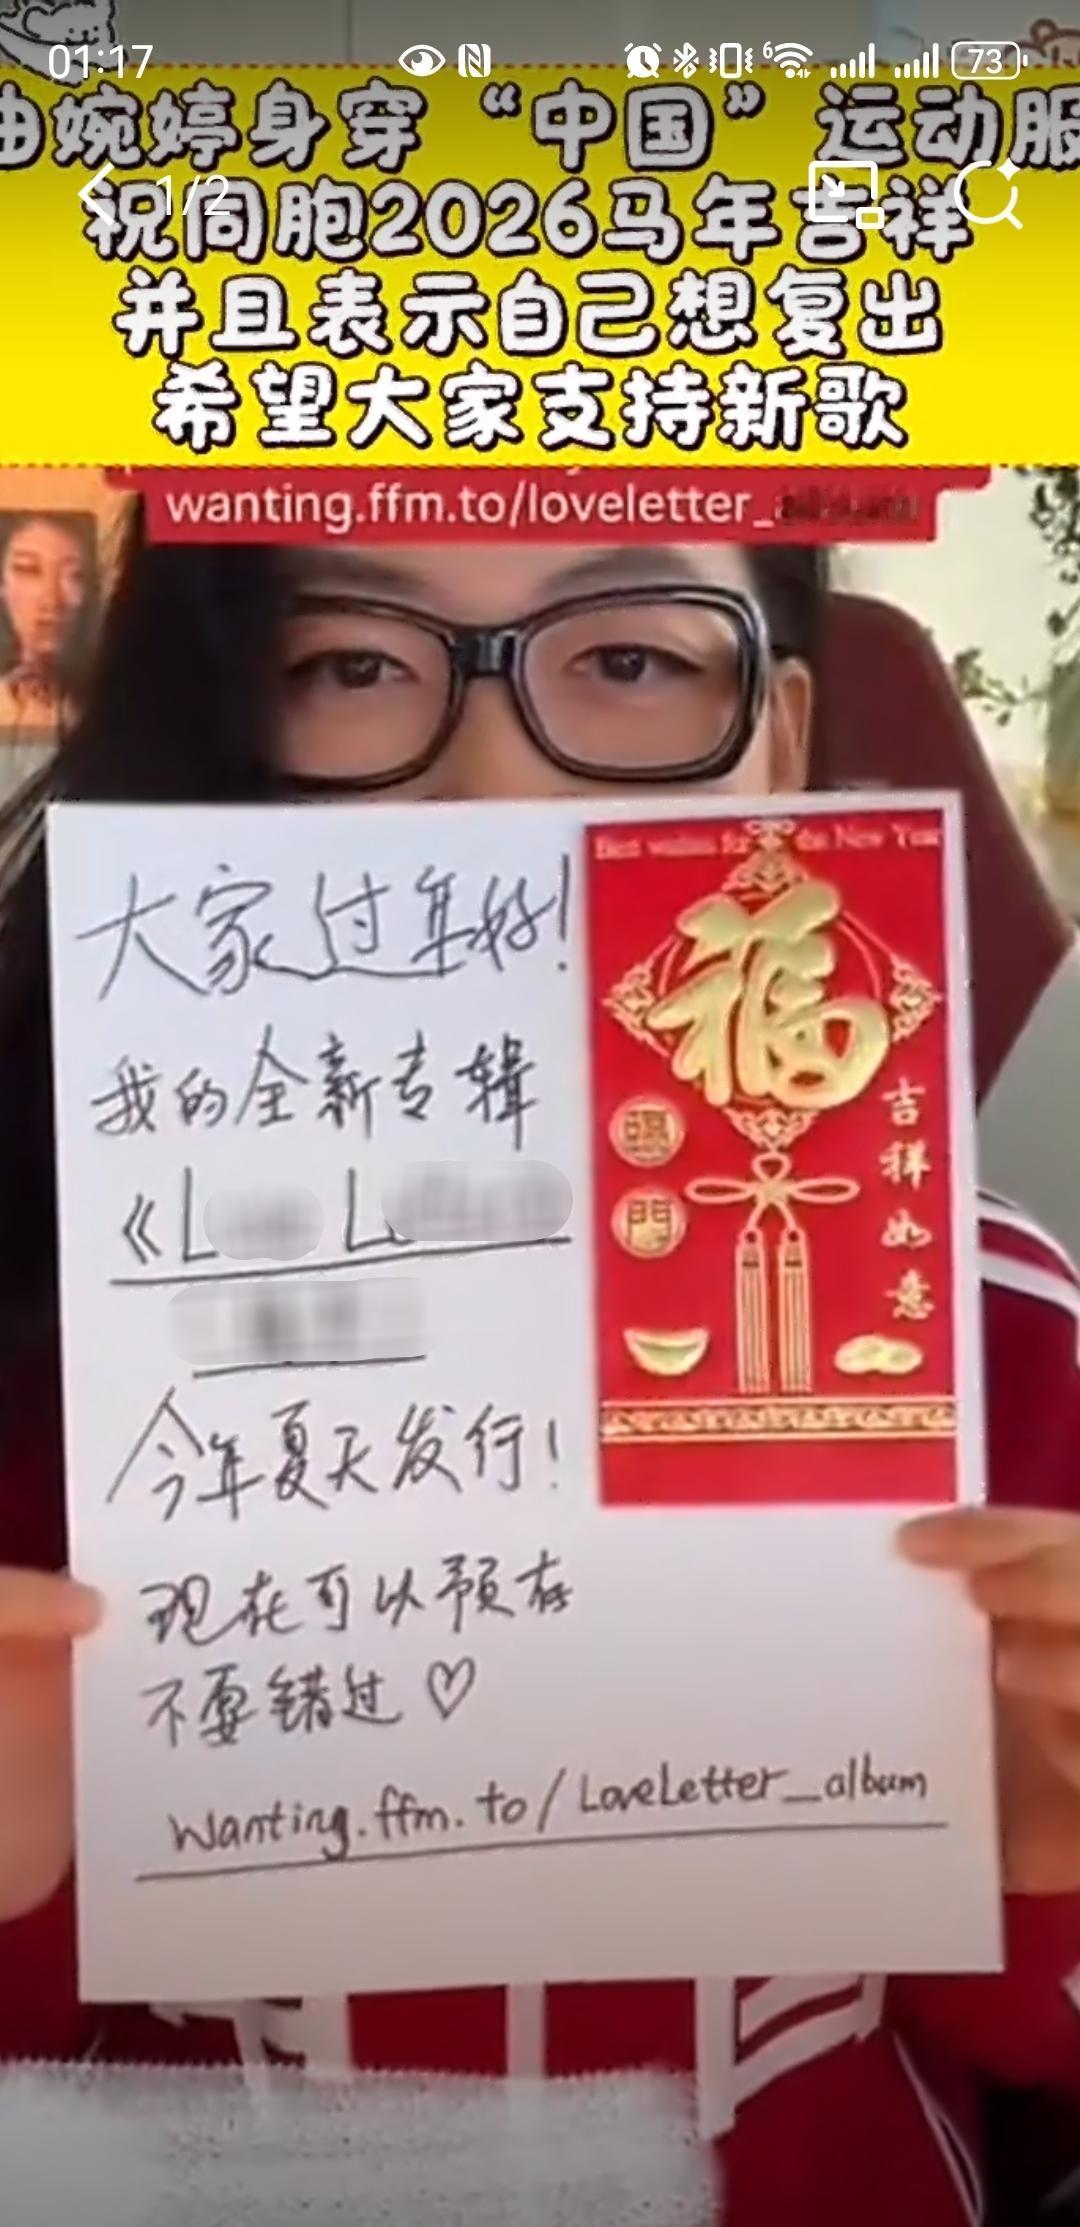 01:17
73
曲婉婷身穿“中国”运动服
1/2
祝同胞2026马年吉祥
并且表示自己想复出
希望大家支持新歌
wanting.ffm.to/loveletter_
Best wishes for the New Year
大家过年好!
福
我的全新专辑
臨
門
吉祥如意
《L L
今年夏天发行!
现在可以预存
不要错过♡
Wanting.ffm.to/LoveLetter_album